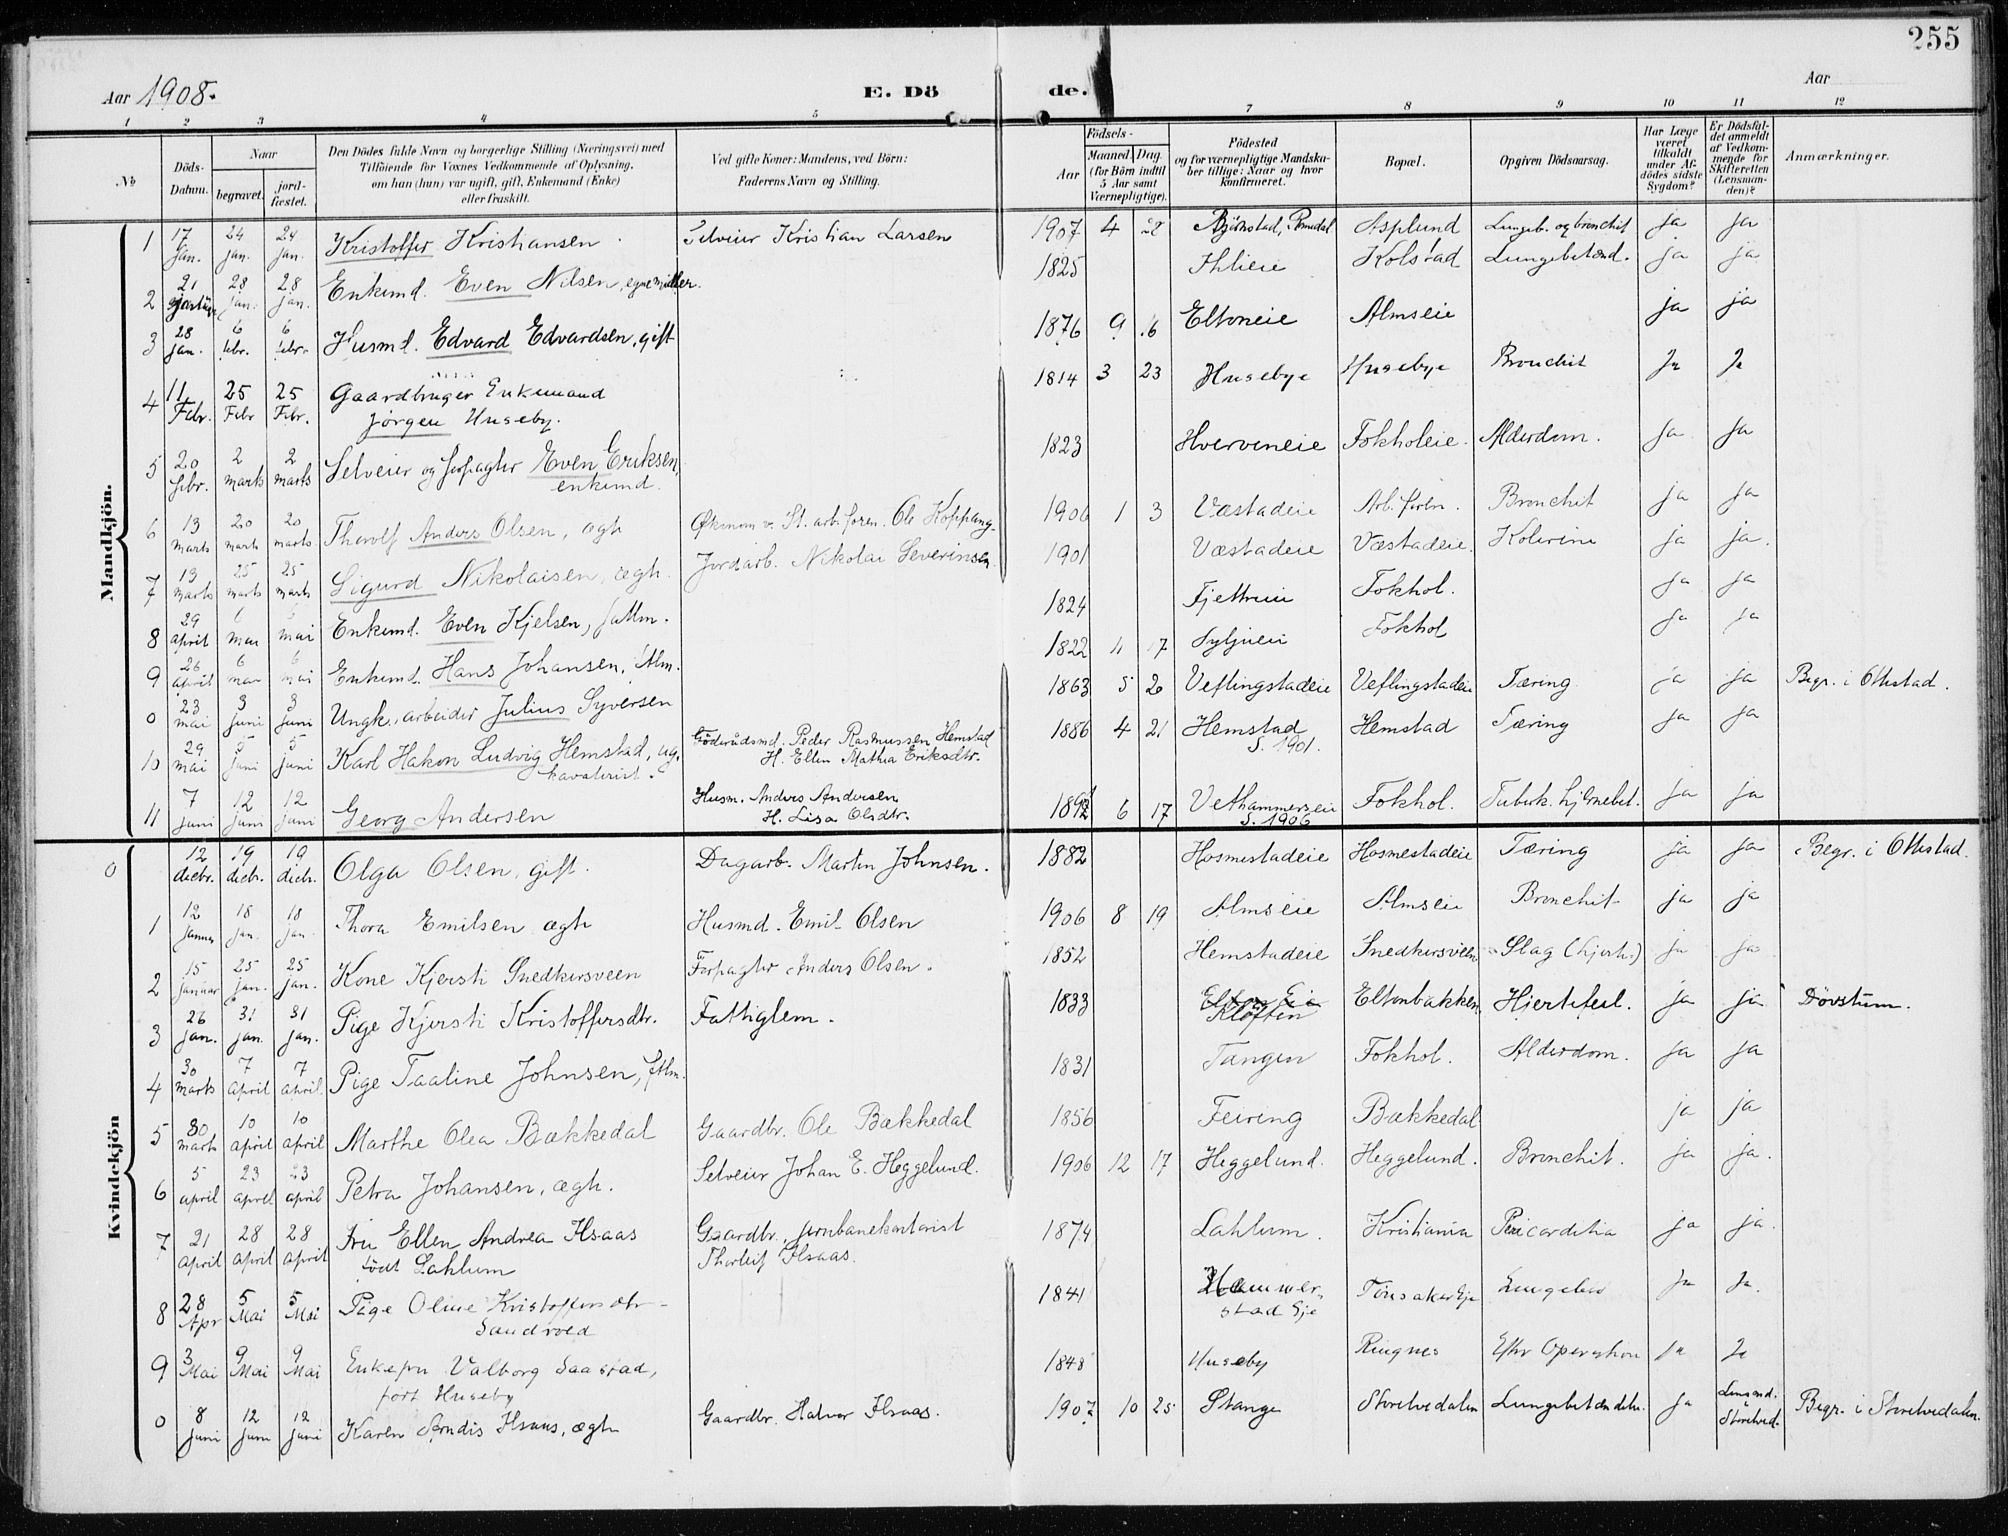 255
Aar 1908.
E. Dö de.
Aar
1 2 3 4 5 6 7 8 9 10 11 12
No
Döds-Datum.
Naar
begravet.
jord-fæstet.
Den Dödes fulde Navn og borgerlige Stilling (Næringsvei) med
Tilföiende for Voxnes Vedkommende af Oplysning,
om han (hun) var ugift, gift, Enkemand (Enke)
eller fraskilt.
Ved gifte Koner: Mandens, ved Börn:
Faderens Navn og Stilling.
Födsels-
Aar
Maaned. Dag.
(for Börn indtil
5 Aar samt
Værnepligtige).
Födested
og for værnepligtige Mandska-
ber tillige: Naar og hvor
konfirmeret.
Bopæl.
Opgiven Dödsaarsag.
Har Læge
været
tilkaldt
under Af-
dödes sidste
Sygdom?
Er Dödsfal-
det anmeldt
af Vedkom-
mende for
Skifteretten
(Lensman-
den)?
Anmærkninger.
Mandkjön.
1 17 jan. 24 jan. 24 jan. Kristoffer Kristiansen. Selveier Kristian Larsen 1907 4 28 Bjørnstad, Romedal Asplund Lungeb. og bronchit ja ja
2 21 januar 28 jan. 28 jan. Enkemd. Even Nilsen, egne midler. 1825 Ihlieie Kolstad Lungebetænd. ja ja
3 28 jan. 6 febr. 6 febr. Husmd. Edvard Edvardsen, gift 1876 9 16 Eltoneie Almseie ja ja
4 11 Febr. 25 Febr 25 Febr. Gaardbruger Enkemand
Jørgen Huseby. 1814 3 23 Husebye Husebye Bronchit Ja Ja
5 20 febr. 2 marts 2 marts Selveier og forpagter Even Eriksen,
enkemd. 1823 Hverveneie Fokholeie. Alderdom. ja ja
6 13 marts 20 marts 20 marts Thorolf Anders Olsen, ægte Økonom v. St. arb. foren. Ole Koppang 1906 1 3 Væstadeie Arb. foren. Bronchit ja ja
7 19 marts 25 marts 25 marts Sigurd Nikolaisen, ægte. Jordarb. Nikolai Severinsen 1901 Væstadeie Væstadeie. Kolerine ja ja.
8 29 april 6 mai 6 mai Enkemd. Even Kjelsen, fattm. 1824 Fjetreeie Fokhol. ja ja
9 26 april 6 mai 6 mai Enkemd. Hans Johansen, fattm. 1822 11 17 Syljueie Fokhol ja ja
0 23 mai 3 juni 3 juni Ungk., arbeider Julius Syversen 1863 5 26 Veflingstadeie Veflingstadeie Tæring ja ja Begr. i Ottestad.
10 29 mai 5 juni 5 juni Karl Hakon Ludvig Hemstad, ug.
kavalerist. Føderådsmd. Peder Rasmussen Hemstad
H. Ellen Mathea Eriksdtr. 1886 4 21 Hemstad
S. 1901. Hemstad Tæring ja ja
11 7 juni 12 juni 12 juni Georg Andersen Husm. Anders Andersen
H. Lisa Olsdtr. 1892 6 17 Vethammerseie
S. 1906 Fokhol. Tuberk. hjernebet. ja ja
Kvindekjön
0 12 decbr. 19 decbr. 19 decbr. Olga Olsen, gift. Dagarb. Martin Johnsen. 1882 Hosmestadeie Hosmestadeie Tæring ja ja Begr. i Ottestad.
1 12 januar 18 jan. 18 jan. Thora Emilsen ægte Husmd. Emil Olsen 1906 8 19 Almseie Almseie Bronchit ja ja
2 15 januar 25 jan. 25 jan. Kone Kjersti Snedkersveen Forpagter Anders Olsen. 1852 Hemstadeie Snedkersveen Slag (hjerte.) ja ja
3 26 jan. 31 jan. 31 jan. Pige Kjersti Kristoffersdtr. Fattiglem. 1833 Elton Eie
Kløften Eltonbakken Hjertefeil. ja ja Døvstum.
4 30 marts 7 april 7 april. Pige Taaline Johnsen, fattm. 1831 Tangen Fokhol. Alderdom. ja ja
5 30 marts 10 april 10 april Marthe Olea Bækkedal Gaardbr. Ole Bækkedal 1856 Feiring Bækkedal ja ja
6 5 april 23 april 23 april Petra Johansen, ægte. Selveier Johan E. Heggelund. 1906 12 17 Heggelund. Heggelund. Bronchit. ja ja.
7 21 april 28 april 28 april Fru Ellen Andrea Ilsaas
født Sahlum Gaardbr., jernbanekontorist
Thorleif Ilsaas. 1874 Sahlum. Kristiania Pericarditia ja ja.
8 28 Apr 5 Mai 5 Mai Pige Oline Kristoffersdtr
Sandvold 1841 Hammer-
stad Eje Tønsaker Eje Lungebet Ja Ja.
9 3 Mai 9 Mai 9 Mai Enkefru Valborg Saastad,
født Huseby 1848 Huseby Ringnes Eftr Operation ja Ja
0 8 juni 12 juni 12 juni Karen Arndis Ilsaas, ægte Gaardbr. Halvor Ilsaas. 1907 10 25 Stange Storelvedalen Lungebetændelse. ja Lensmd. i Storelved. Begr. i Storelvedalen.